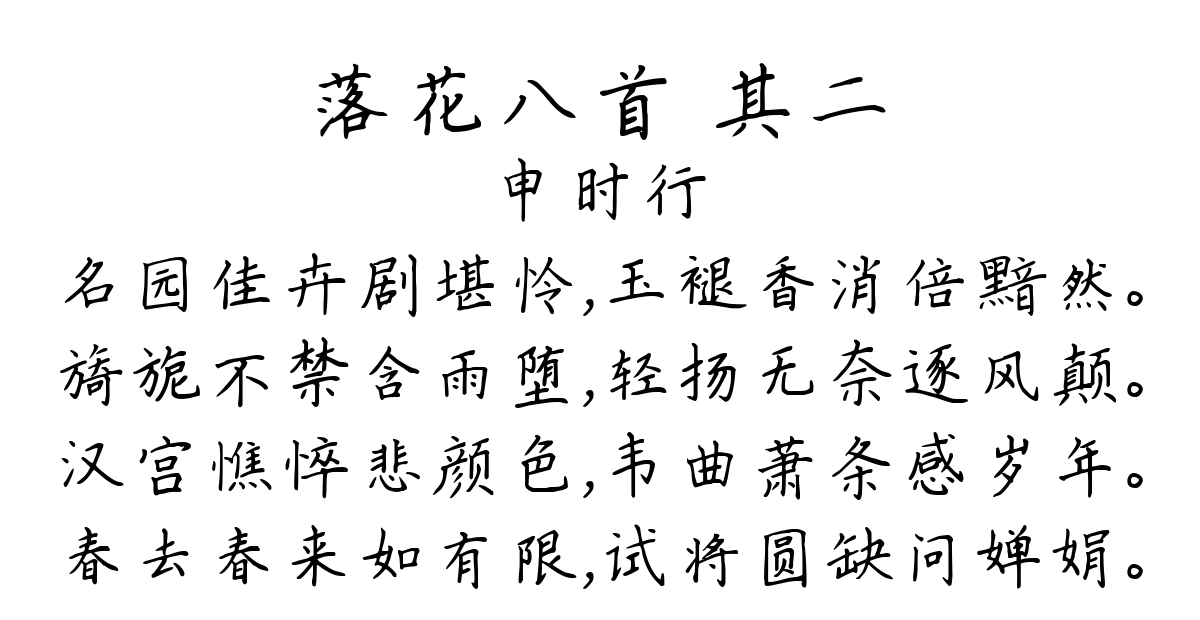 落花八首 其二
申时行
名园佳卉剧堪怜,玉褪香消倍黯然。
旖旎不禁含雨堕,轻扬无奈逐风颠。
汉宫憔悴悲颜色,韦曲萧条感岁年。
春去春来如有限,试将圆缺问婵娟。